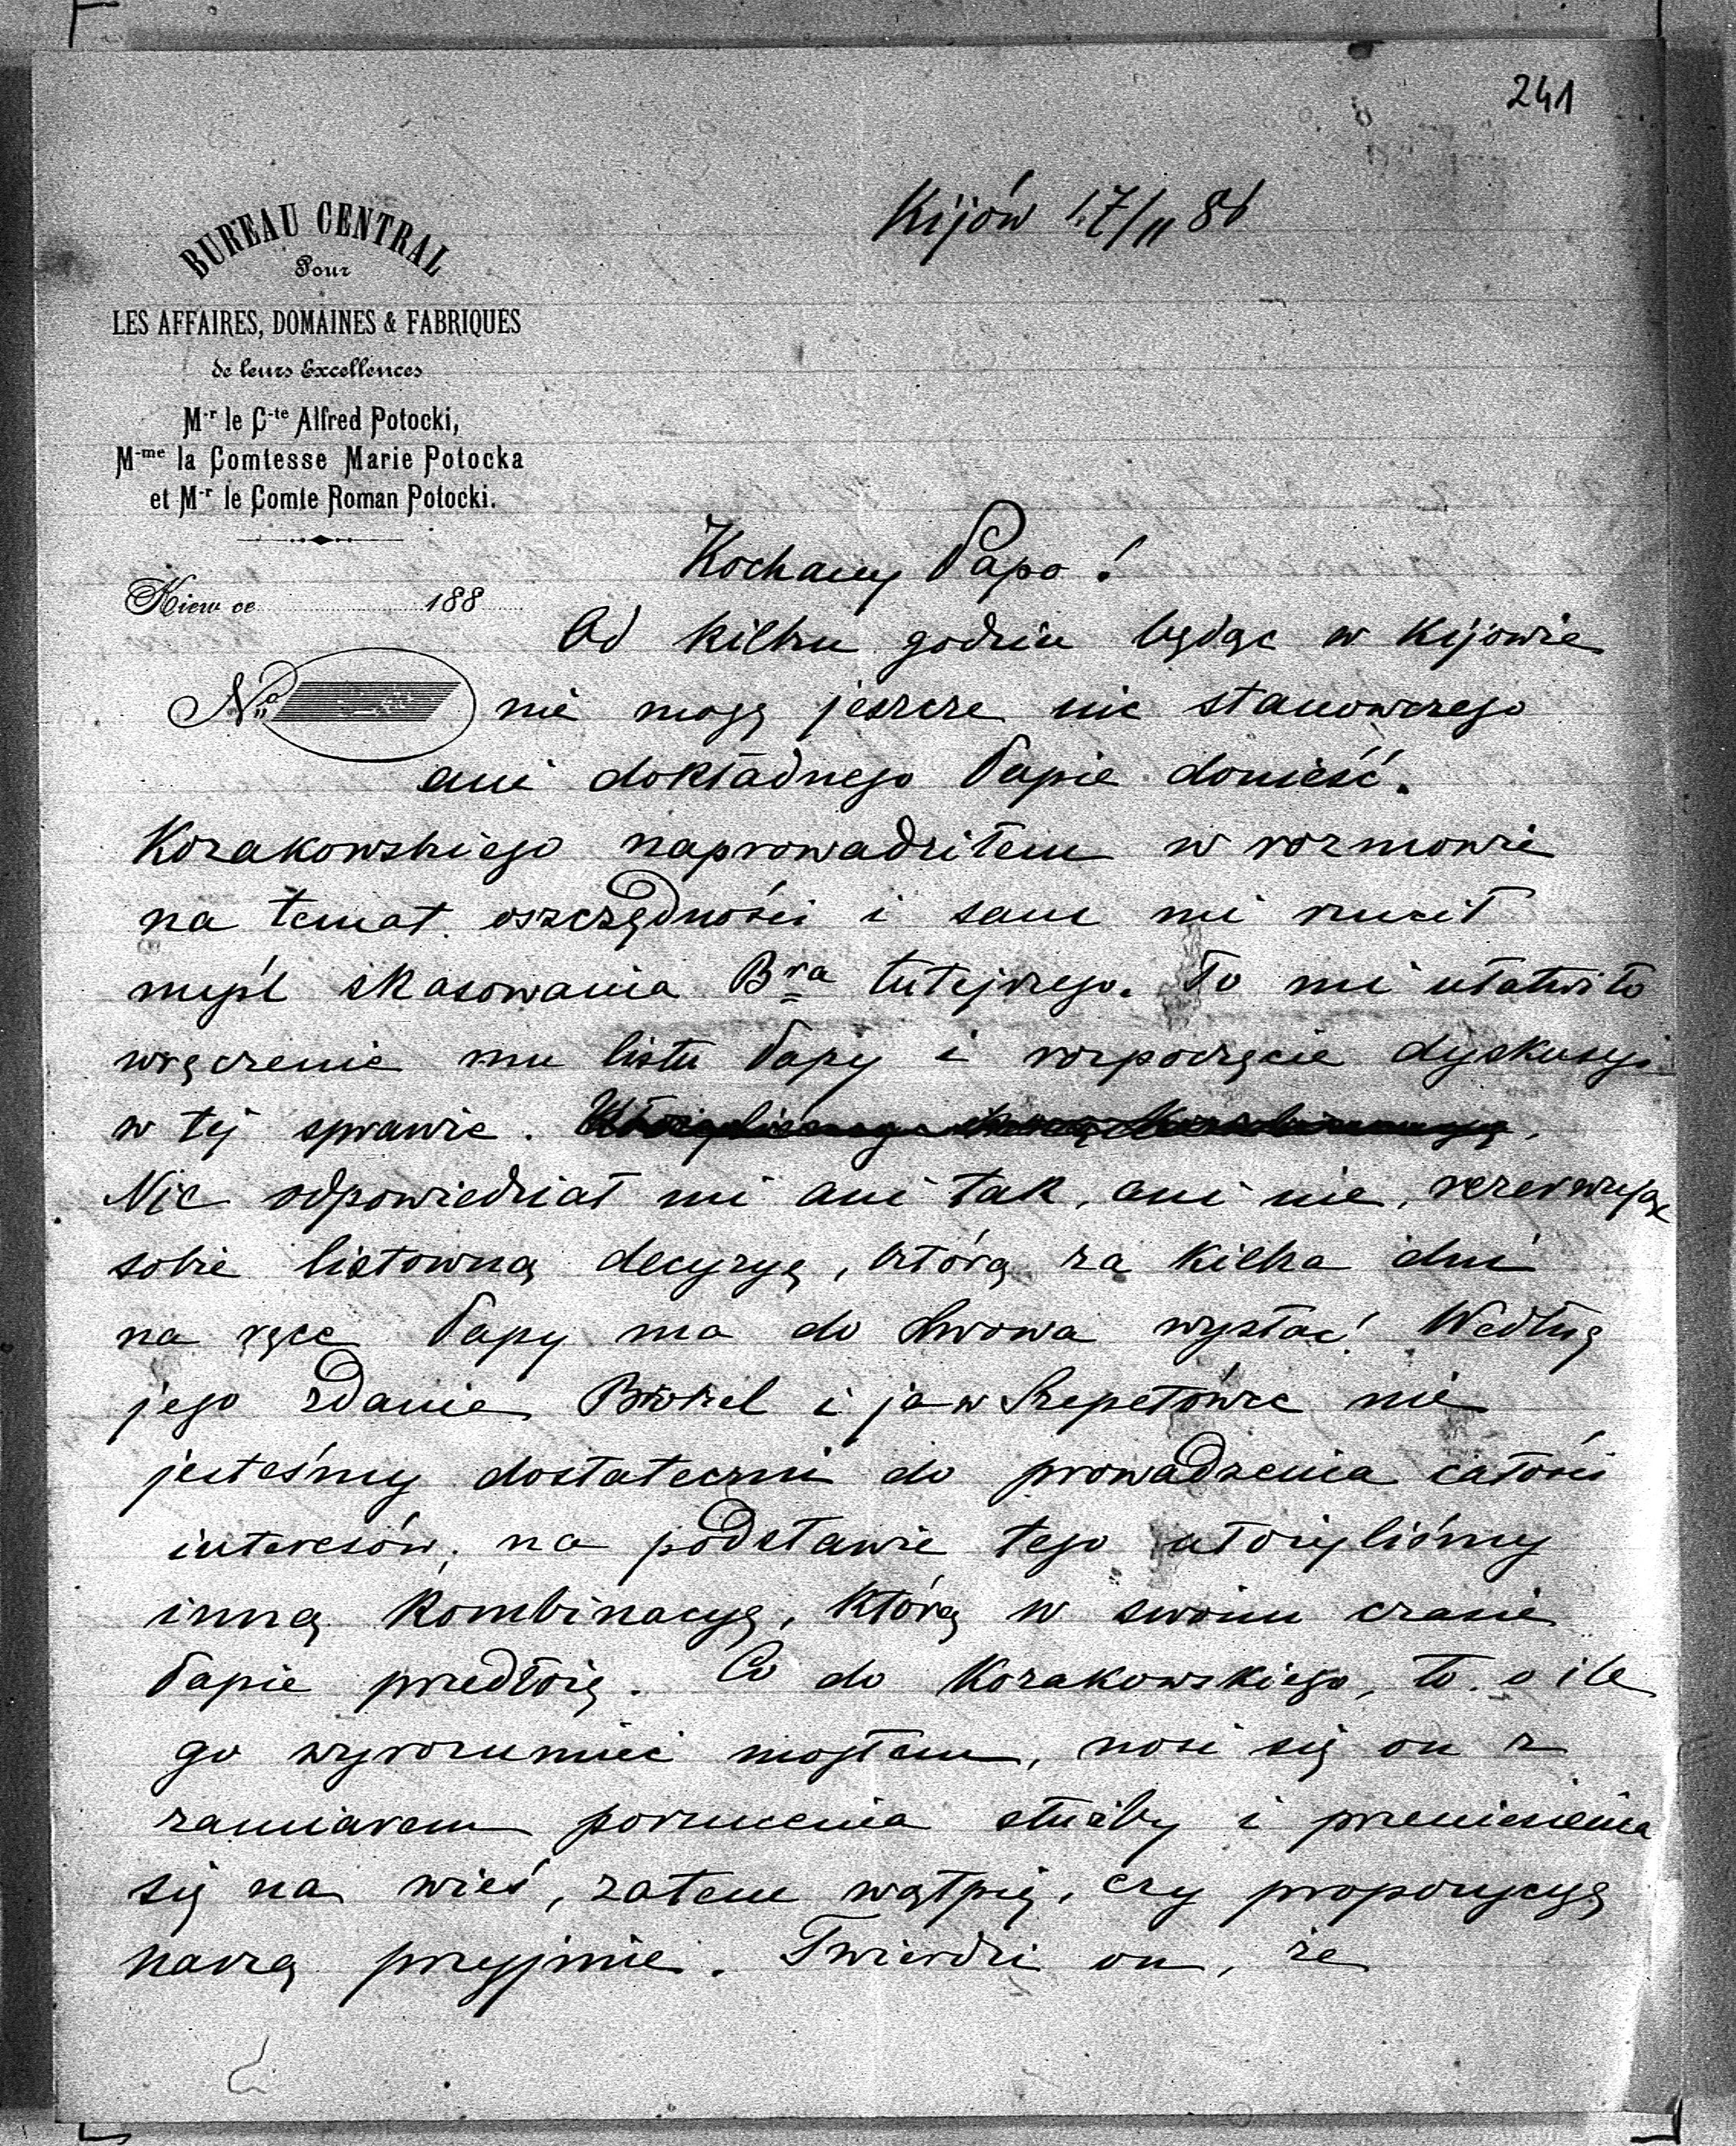 241
Kijów 17/11 86
BUREAU CENTRAL
Pour
LES AFFAIRES, DOMAINES & FABRIQUES
de leurs Excellences
M-r le C-te Alfred Potocki,
M-me la Comtesse Marie Potocka
et M-r le Comte Roman Potocki.
Kiew ce 188
No
Kochany Papo!
Od kilku godzin będąc w Kijowie
nie mogę jeszcze nic stanowczego
ani dokładnego Papie donieść.
Kozakowskiego naprowadziłem w rozmowie
na temat oszczędności i sam mi rzucił
myśl skasowania Bra tutejszego. To mi ułatwiło
wręczenie mu listu Papy i rozpoczęcie dyskusyi
w tej sprawie.
Nie odpowiedział mi ani tak, ani nie, rezerwując
sobie listowną decyzyę, którą za kilka dni
na ręce Papy ma do Lwowa wysłać! Według
jego zdanie i ja w Szepetówce nie
jesteśmy dostateczni do prowadzenia całości
interesów, na podstawie tego ułożyliśmy
inną kombinacyę, którą w swoim czasie
Papie przedłożę. Co do Kozakowskiego, to o ile
go wyrozumieć mogłem, nosi się on z
zamiarem porzucenia służby i przeniesienia
się na wieś, zatem wątpię, czy propozycyę
naszą przyjmie. Twierdzi on, że